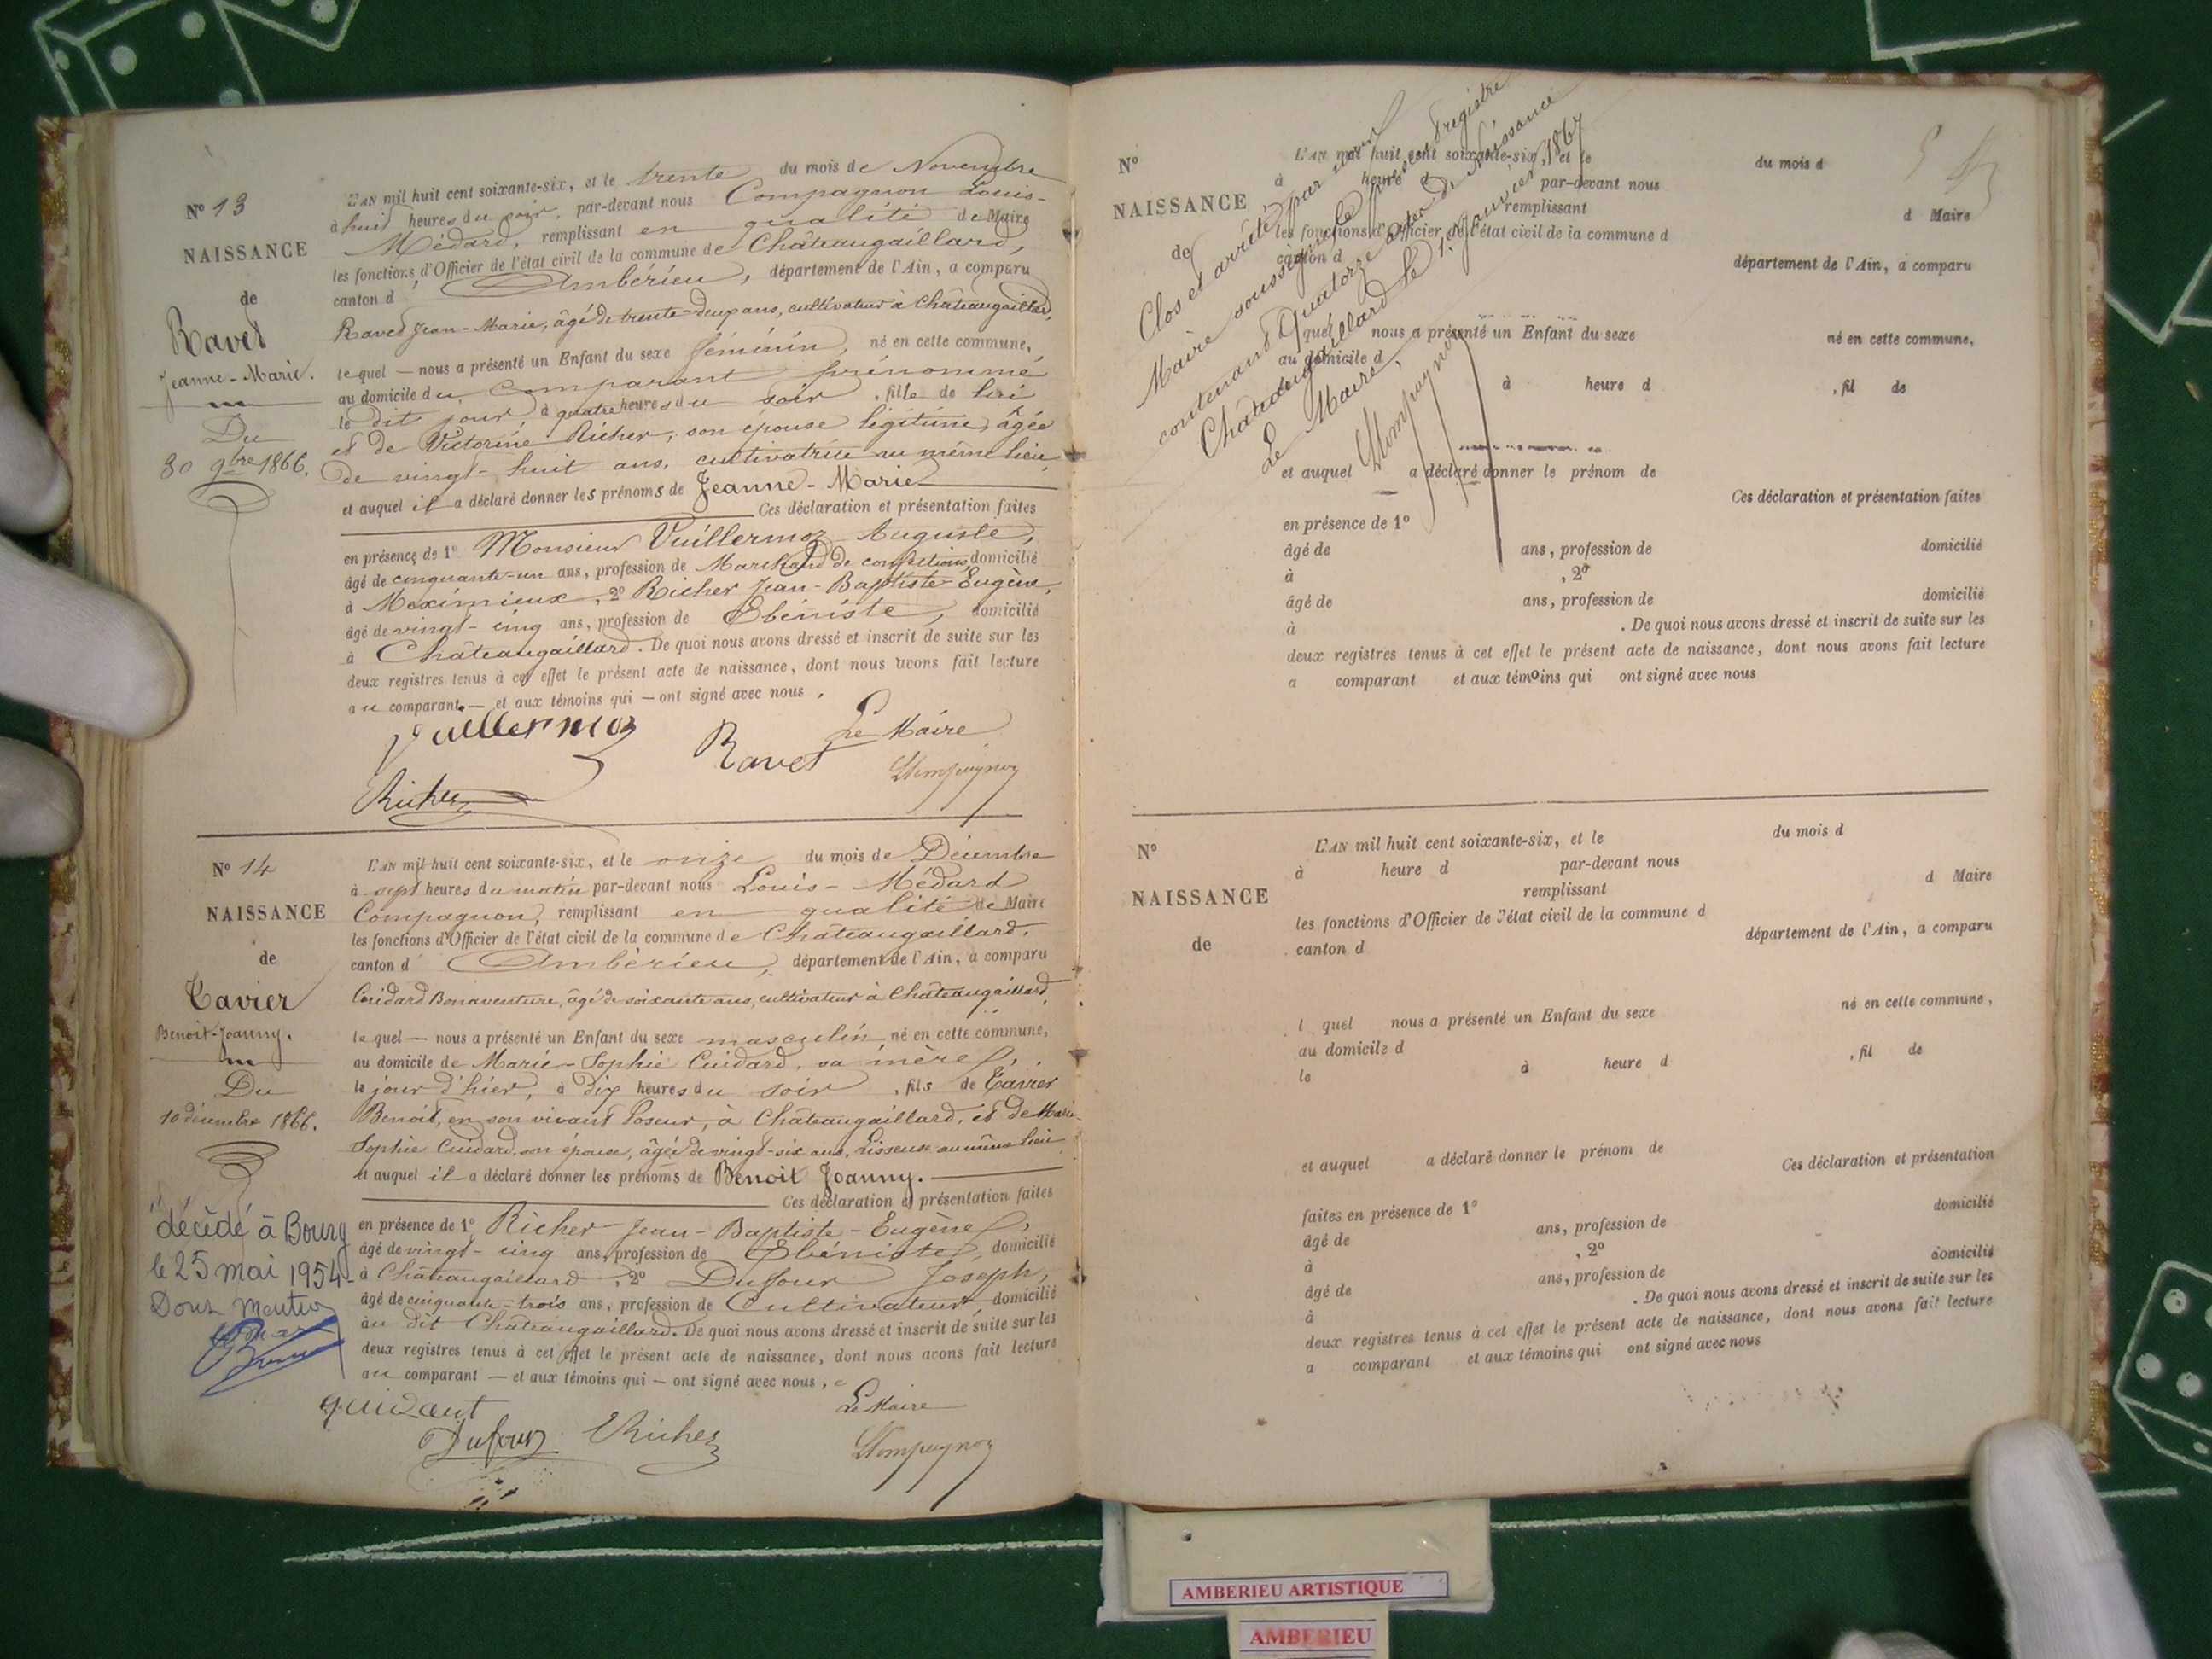 N° 13
NAISSANCE
de
Ravet
Jeanne-Marie.
Du
30 9bre 1866.
L'AN mil huit cent soixante-six, et le trente du mois de Novembre
à huit heures du soir, par-devant nous Compagnon Louis-
Médard, remplissant en qualité de Maire
les fonctions d'Officier de l'état civil de la commune de Châteaugaillard,
canton d'Ambérieu, département de l'Ain, a comparu
Ravet Jean-Marie, âgé de trente-deux ans, cultivateur à Châteaugaillard,
lequel — nous a présenté un Enfant du sexe féminin, né en cette commune,
au domicile du comparant prénommé
le dit jour, à quatre heures du soir, fille de lui
et de Victorine Richer, son épouse légitime, âgée
de vingt-huit ans, cultivatrice au même lieu,
et auquel il a déclaré donner les prénoms de Jeanne-Marie
Ces déclaration et présentation faites
en présence de 1° Monsieur Vuillermoz Auguste,
âgé de cinquante-un ans, profession de Marchand de domicilié
à Meximieux, 2° Richer Jean-Baptiste-Eugène,
âgé de vingt-cinq ans, profession de Ebéniste, domicilié
à Châteaugaillard. De quoi nous avons dressé et inscrit de suite sur les
deux registres tenus à cet effet le présent acte de naissance, dont nous avons fait lecture
au comparant — et aux témoins qui — ont signé avec nous,
Vuillermoz Ravet Le Maire
Richer LCompagnon
N° 14
NAISSANCE
de
Tavier
Benoit-Joanny.
Du
10 décembre 1866.
décédé à Bourg
le 25 mai 1954
Dont mention
L'AN mil huit cent soixante-six, et le onze du mois de Décembre
à sept heures du matin par-devant nous Louis-Médard
Compagnon, remplissant en qualité de Maire
les fonctions d'Officier de l'état civil de la commune de Châteaugaillard,
canton d'Ambérieu, département de l'Ain, a comparu
Cuidard Bonaventure, âgé de soixante ans, cultivateur à Châteaugaillard,
lequel — nous a présenté un Enfant du sexe masculin, né en cette commune,
au domicile de Marie-Sophie Cuidard, sa mère,
le jour d'hier, à dix heures du soir, fils de Tavier
Benoit, en son vivant Poseur, à Châteaugaillard, et de Marie-
Sophie Cuidard, son épouse, âgée de vingt-six ans, au même lieu
et auquel il a déclaré donner les prénoms de Benoit Joanny.
Ces déclaration et présentation faites
en présence de 1° Richer Jean-Baptiste-Eugène,
âgé de vingt-cinq ans, profession de Ebéniste, domicilié
à Châteaugaillard, 2° Dufour Joseph,
âgé de cinquante-trois ans, profession de Cultivateur, domicilié
au dit Châteaugaillard. De quoi nous avons dressé et inscrit de suite sur les
deux registres tenus à cet effet le présent acte de naissance, dont nous avons fait lecture
au comparant — et aux témoins qui — ont signé avec nous,
guidant Le Maire
Dufour Richer LCompagnon
Clos et arrêté par nous
Maire soussigné le présent registre
contenant Quatorze actes de Naissance
Châteaugaillard le 1er Janvier 1867
Le Maire,
LCompagnon
N°
NAISSANCE
de
L'AN mil huit cent soixante-six, et le du mois d
à heure d par-devant nous
remplissant d Maire
les fonctions d'Officier de l'état civil de la commune d
canton d département de l'Ain, a comparu
l quel nous a présenté un Enfant du sexe né en cette commune,
au domicile d
à heure d , fil de
et auquel a déclaré donner le prénom de
Ces déclaration et présentation faites
en présence de 1°
âgé de ans, profession de domicilié
à , 2°
âgé de ans, profession de domicilié
à . De quoi nous avons dressé et inscrit de suite sur les
deux registres tenus à cet effet le présent acte de naissance, dont nous avons fait lecture
a comparant et aux témoins qui ont signé avec nous
N°
NAISSANCE
de
L'AN mil huit cent soixante-six, et le du mois d
à heure d par-devant nous
remplissant d Maire
les fonctions d'Officier de l'état civil de la commune d
canton d département de l'Ain, a comparu
l quel nous a présenté un Enfant du sexe né en cette commune,
au domicile d
le à heure d , fil de
et auquel a déclaré donner le prénom de
Ces déclaration et présentation
faites en présence de 1°
âgé de ans, profession de domicilié
à , 2°
âgé de ans, profession de domicilié
à . De quoi nous avons dressé et inscrit de suite sur les
deux registres tenus à cet effet le présent acte de naissance, dont nous avons fait lecture
a comparant et aux témoins qui ont signé avec nous
AMBERIEU ARTISTIQUE
AMBERIEU